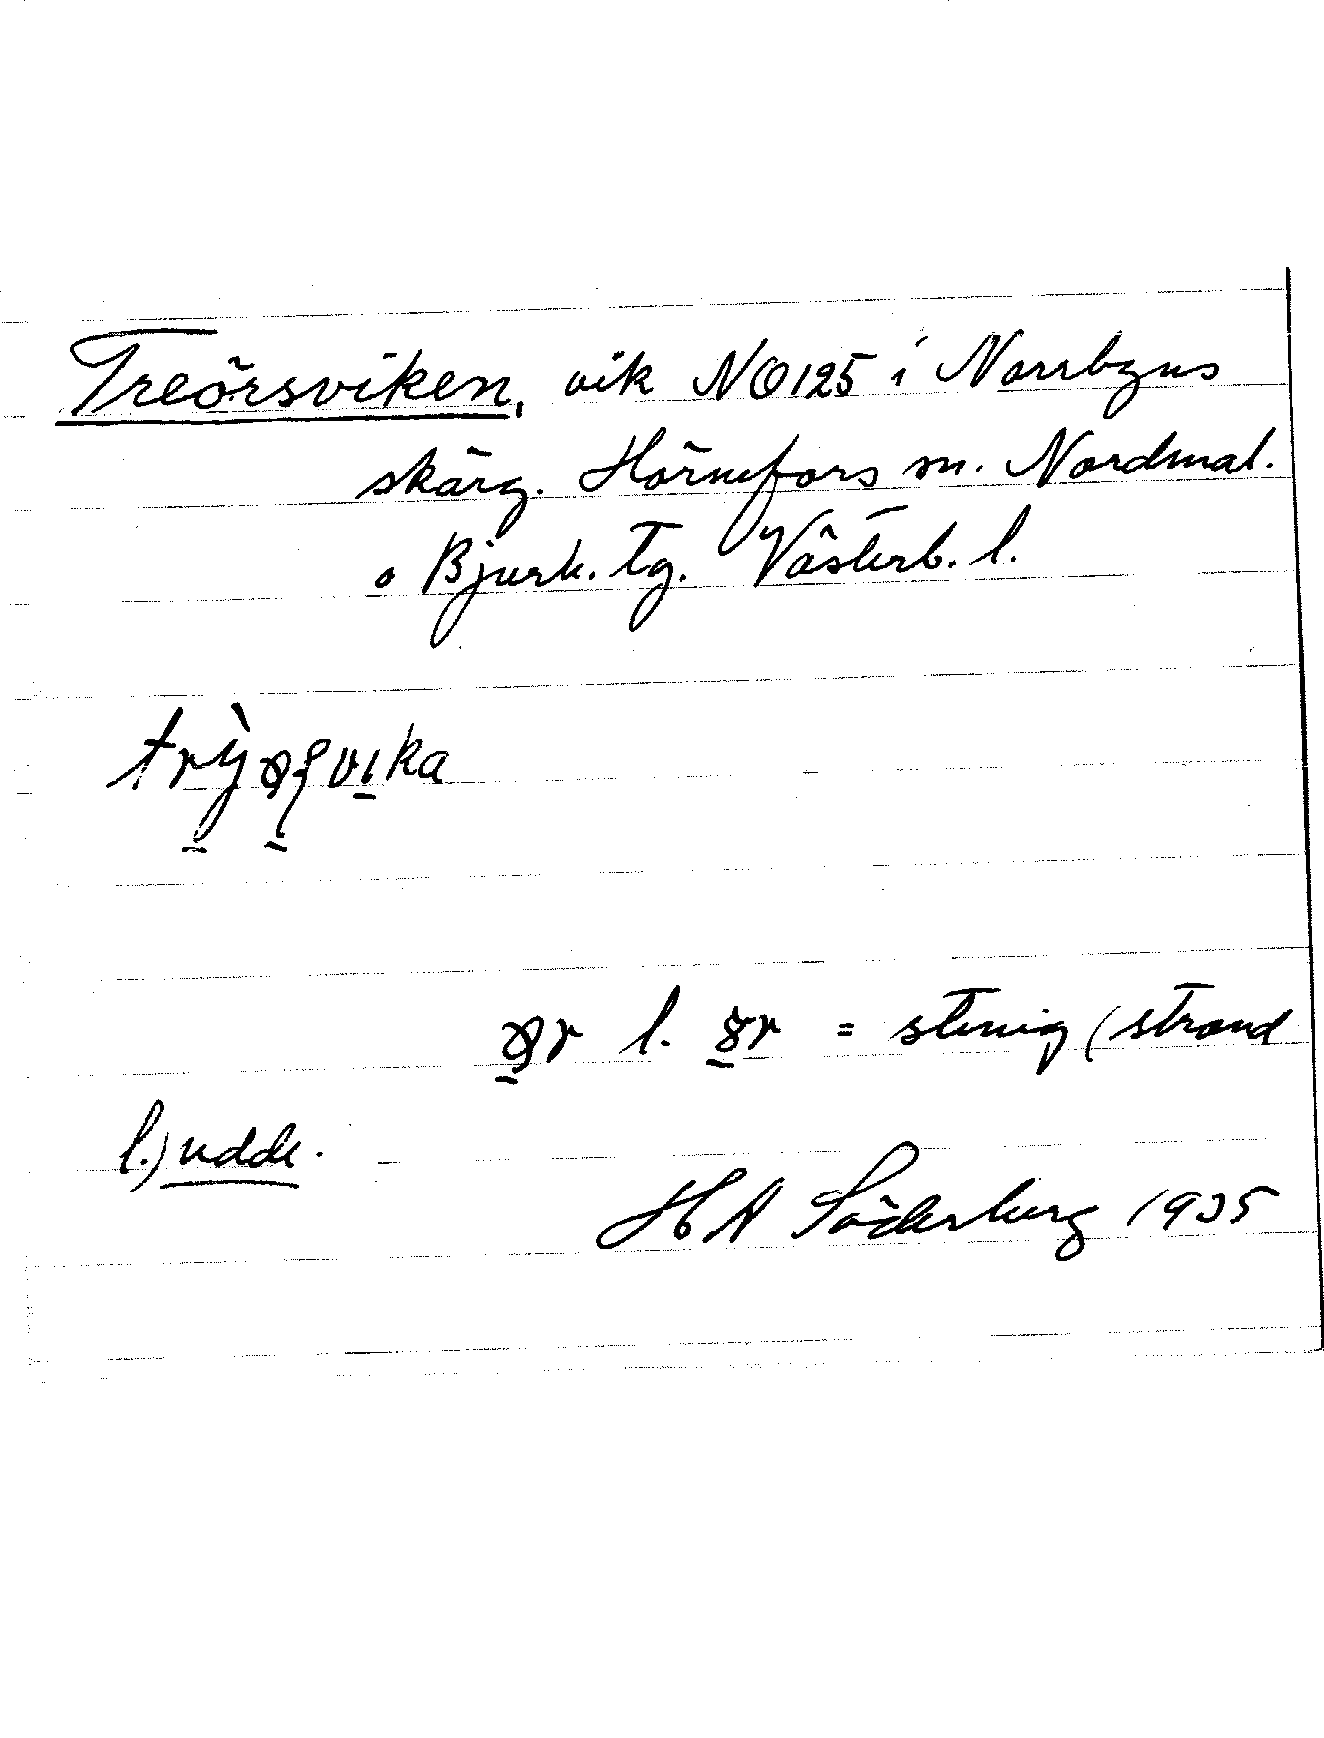 Treörsviken, vik NO125 i Norrbyns
skärg. Hörnefors sn. Nordmal.
o Bjurh. tg. Västerb. l.
l. = stenig (strand
l.) udde.
HA Söderberg 1935